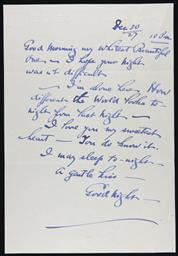 Dec 30
27 10 Pm.
Good Morning my Whitest Beautiful
One — I hope your Night
was not difficult
— I'm done here How
different the World looks to-
night from last Night —
I love you my sweetest
heart — You do know it.
I may sleep to-night —
A gentle kiss
Good Night —